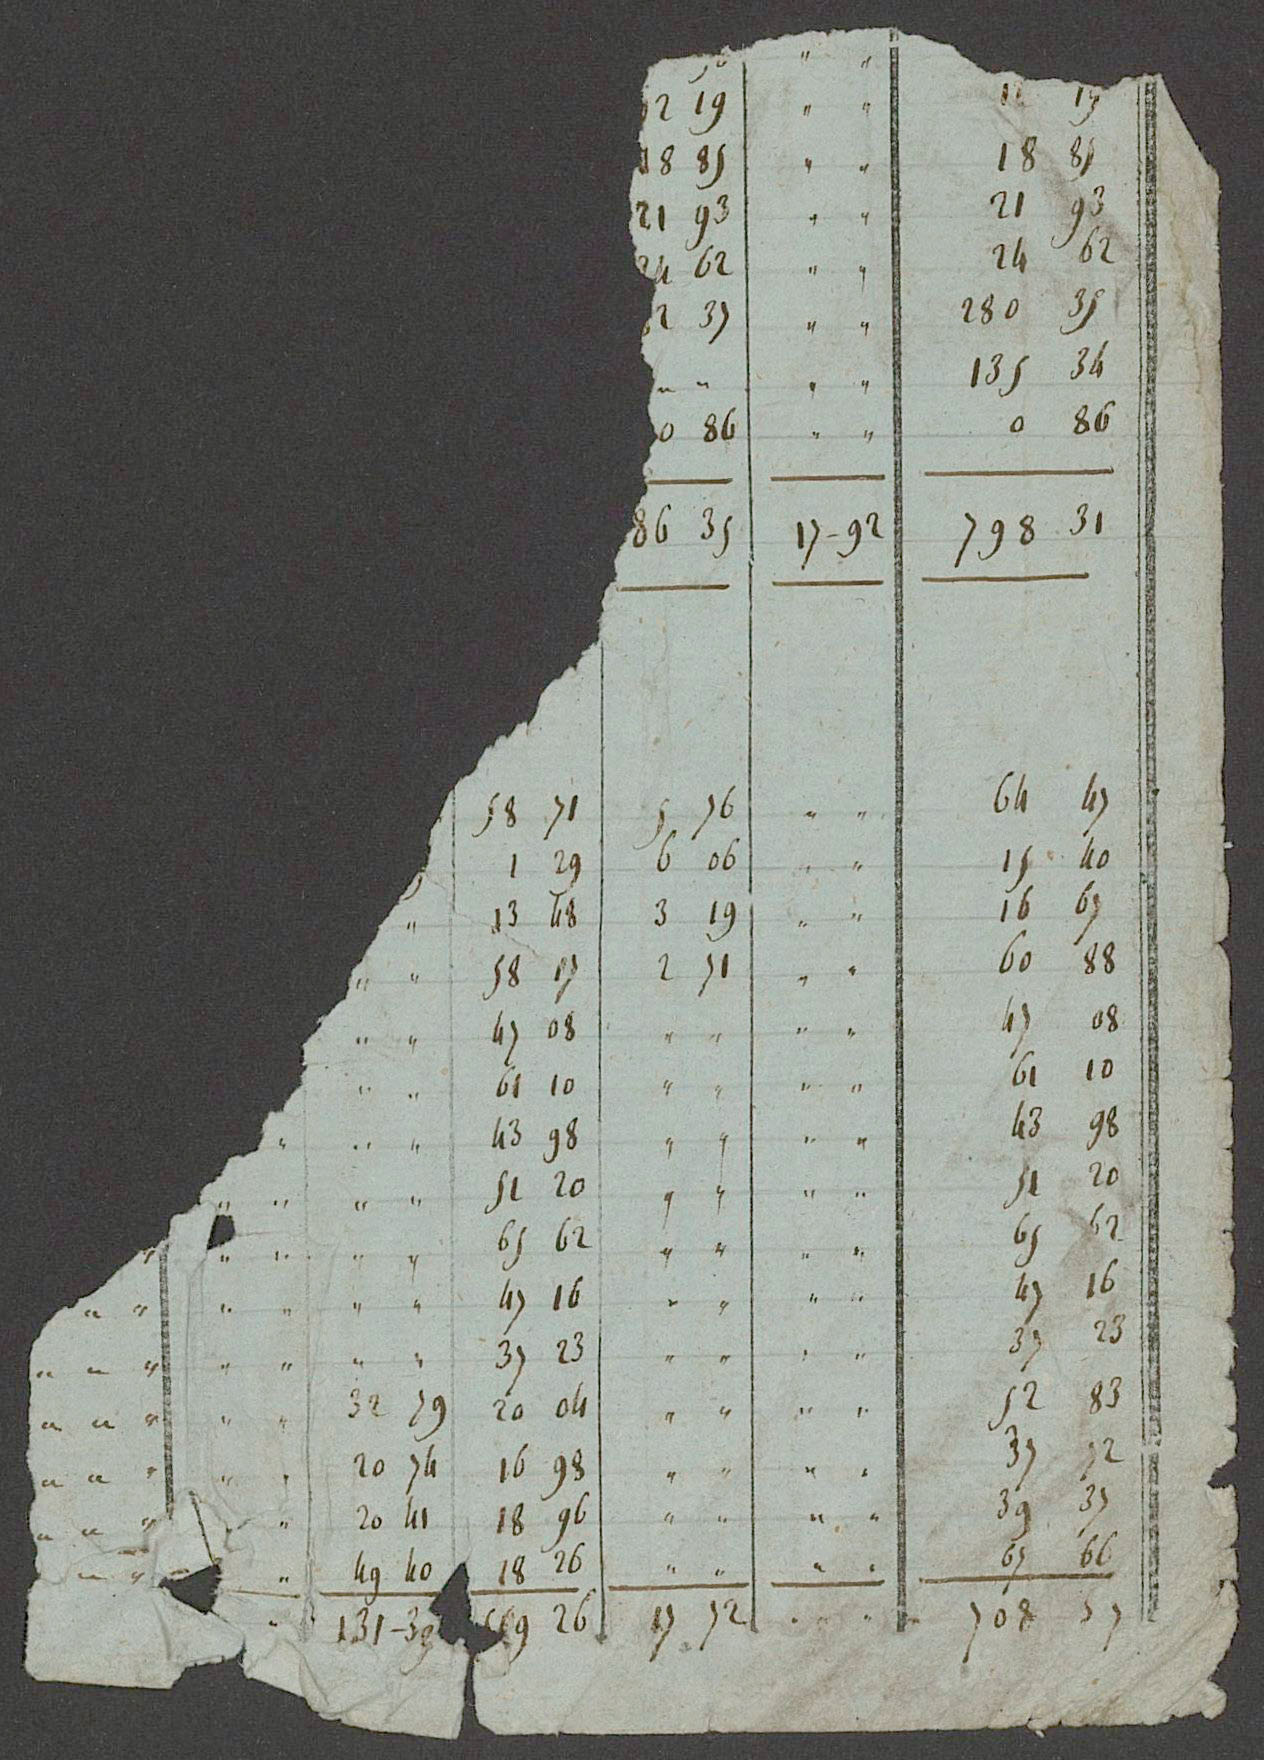 " "
2 19 " " 19
18 85 " " 18 85
21 93 " " 21 93
24 62 " " 24 62
2 37 " " 280 35
" " " " 135 34
0 86 " " 0 86
86 35 17-92 798 31
58 71 5 76 " " 64 47
1 29 6 06 " " 15 40
" 13 48 3 19 " " 16 67
" " 58 17 2 71 " " 60 88
" " 47 08 " " " " 47 08
" " 61 10 " " " " 61 10
" " " 43 98 " " " " 43 98
" " " " 51 20 " " " " 51 20
" " " " " 65 62 " " " " 65 62
" " " " " " 47 16 " " " " 47 16
" " " " " " " 37 23 " " " " 37 23
" " " " " 32 79 20 04 " " " " 52 83
" " " " " 20 74 16 98 " " " " 37 72
" " " " 20 41 18 96 " " " " 39 37
" " " 49 40 18 26 " " " " 67 66
" 131-39 9 26 17 72 " " 708 37